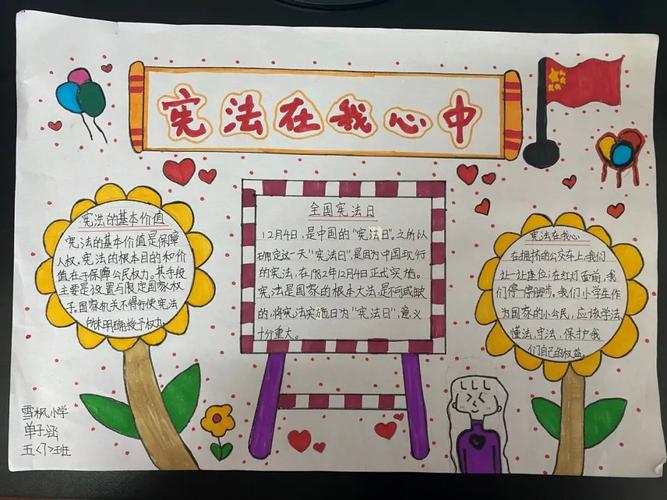 宪法在我心中
宪法的基本价值
宪法的基本价值是保障
人权,宪法的根本目的和价
值在于保障公民权力。其手段
主要是设置与限定国家权
予,国家机关不得行使宪法
所未明确授予权力。
全国宪法日
12月4日,是中国的"宪法日"。之所以
确定这一天"宪法日",是因为中国现行
的宪法,在1982年12月4日正式实施。
宪法是国家的根本大法,是不可或缺
的,将宪法实施日为"宪法日",意义
十分重大。
宪法在我心
在拥挤的公交车上,我们
让一让座位;在红灯面前,我
们停一停脚步。我们小学生作
为国家的小公民,应该学法,
懂法,守法,保护我
们自己的权益。
雪枫小学
单子涵
五〈1〉班